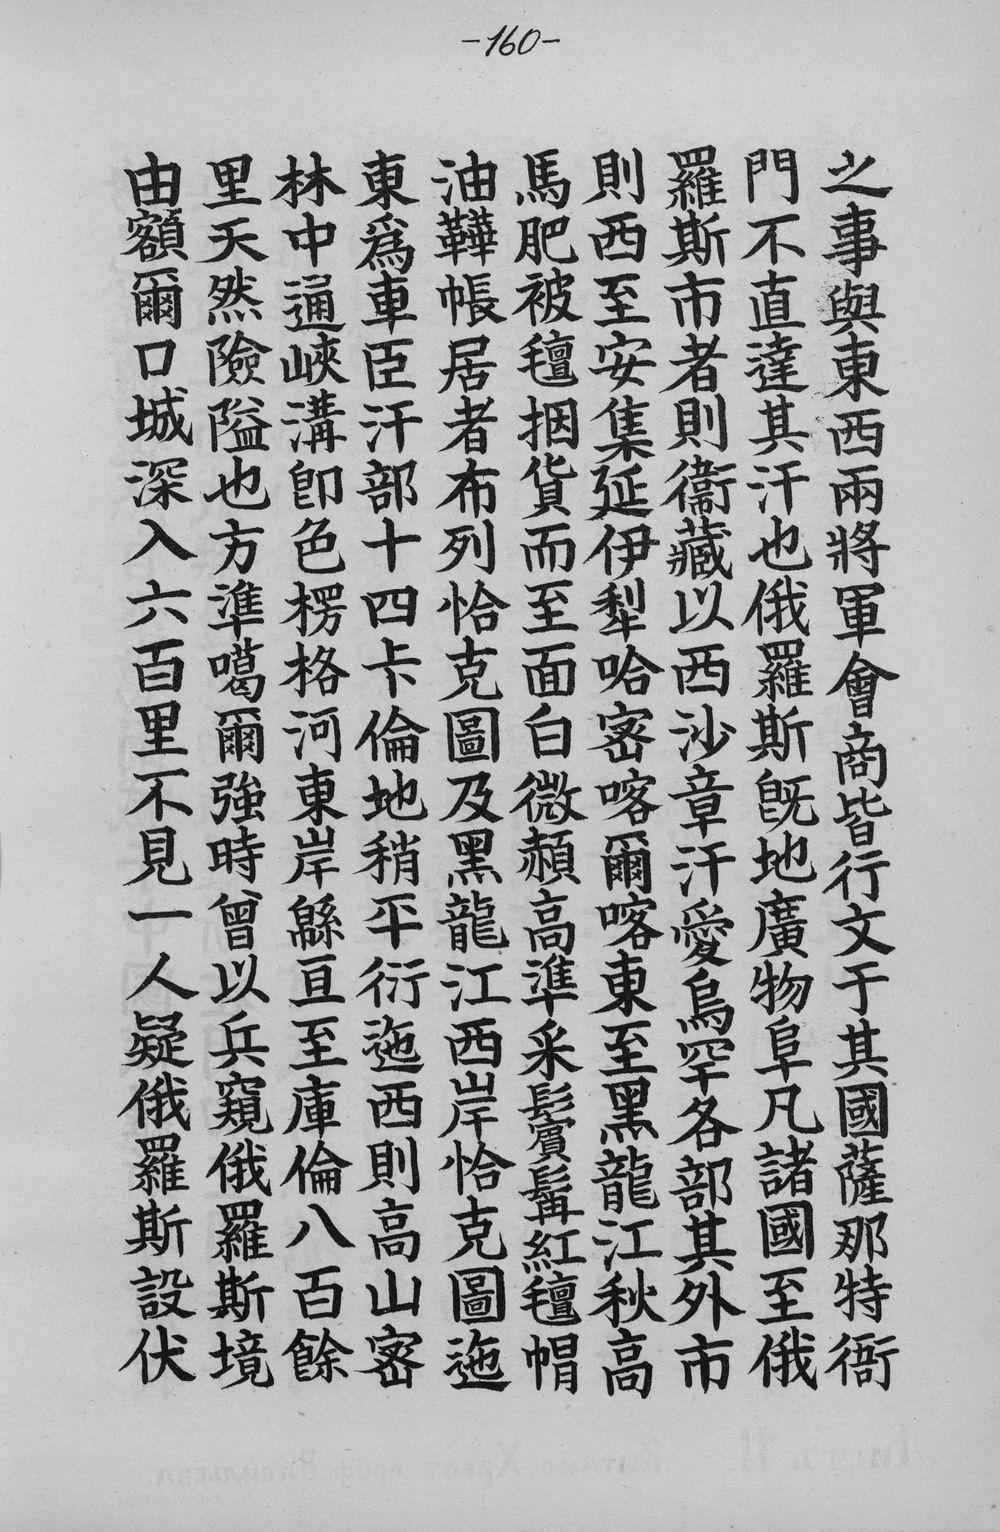 -160-
之事與東西兩將軍會商皆行文于其國薩那特衙
門不直達其汗也俄羅斯旣地廣物阜凡諸國至俄
羅斯市者則衞藏以西沙章汗愛烏罕各部其外市
則西至安集延伊犁哈宻喀爾喀東至黑龍江秋高
馬肥被氊捆貨而至面白微頳高準采鬢鬅紅氊帽
油鞾帳居者布列恰克圖及黑龍江西岸恰克圖迤
東爲車臣汗部十四卡倫地稍平衍迤西則高山宻
林中通峽溝卽色楞格河東岸緜亘至庫倫八百餘
里天然險隘也方準噶爾強時曾以兵窺俄羅斯境
由額爾口城深入六百里不見一人疑俄羅斯設伏